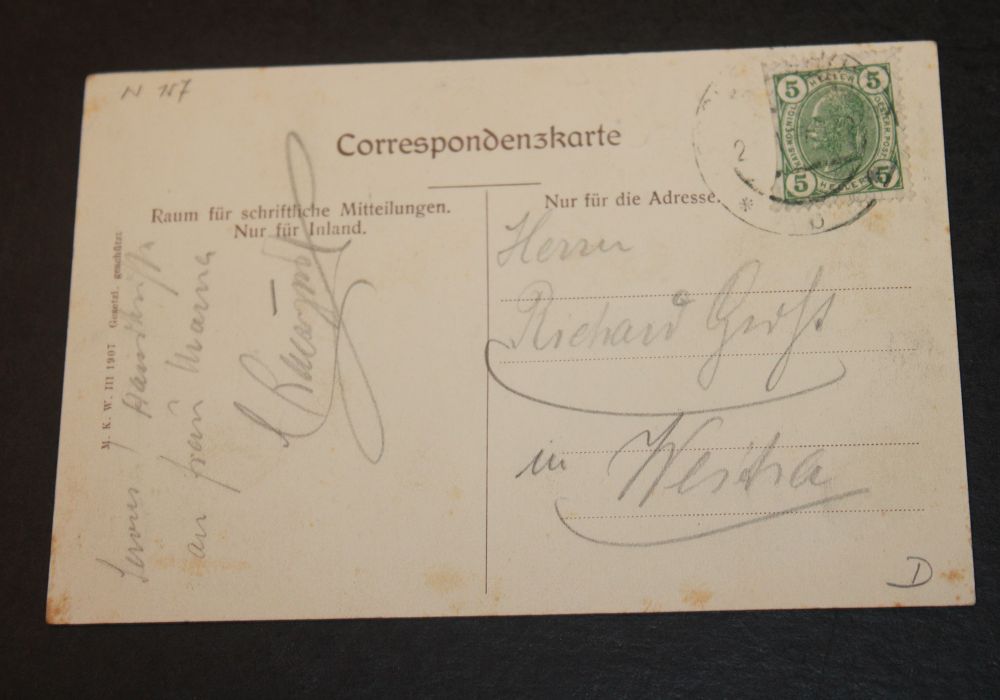 N 157
Correspondenzkarte
Raum für schriftliche Mitteilungen.
Nur für Inland.
Nur für die Adresse.
M. K. W. III 1907 Gesetzl. geschützt
Servus! Handkuß
an Frau Mama
Herrn
Richard
in
5 HELLER 5
KAIS. KOENIGL. OESTERR. POST
5 HELLER 5
2
D